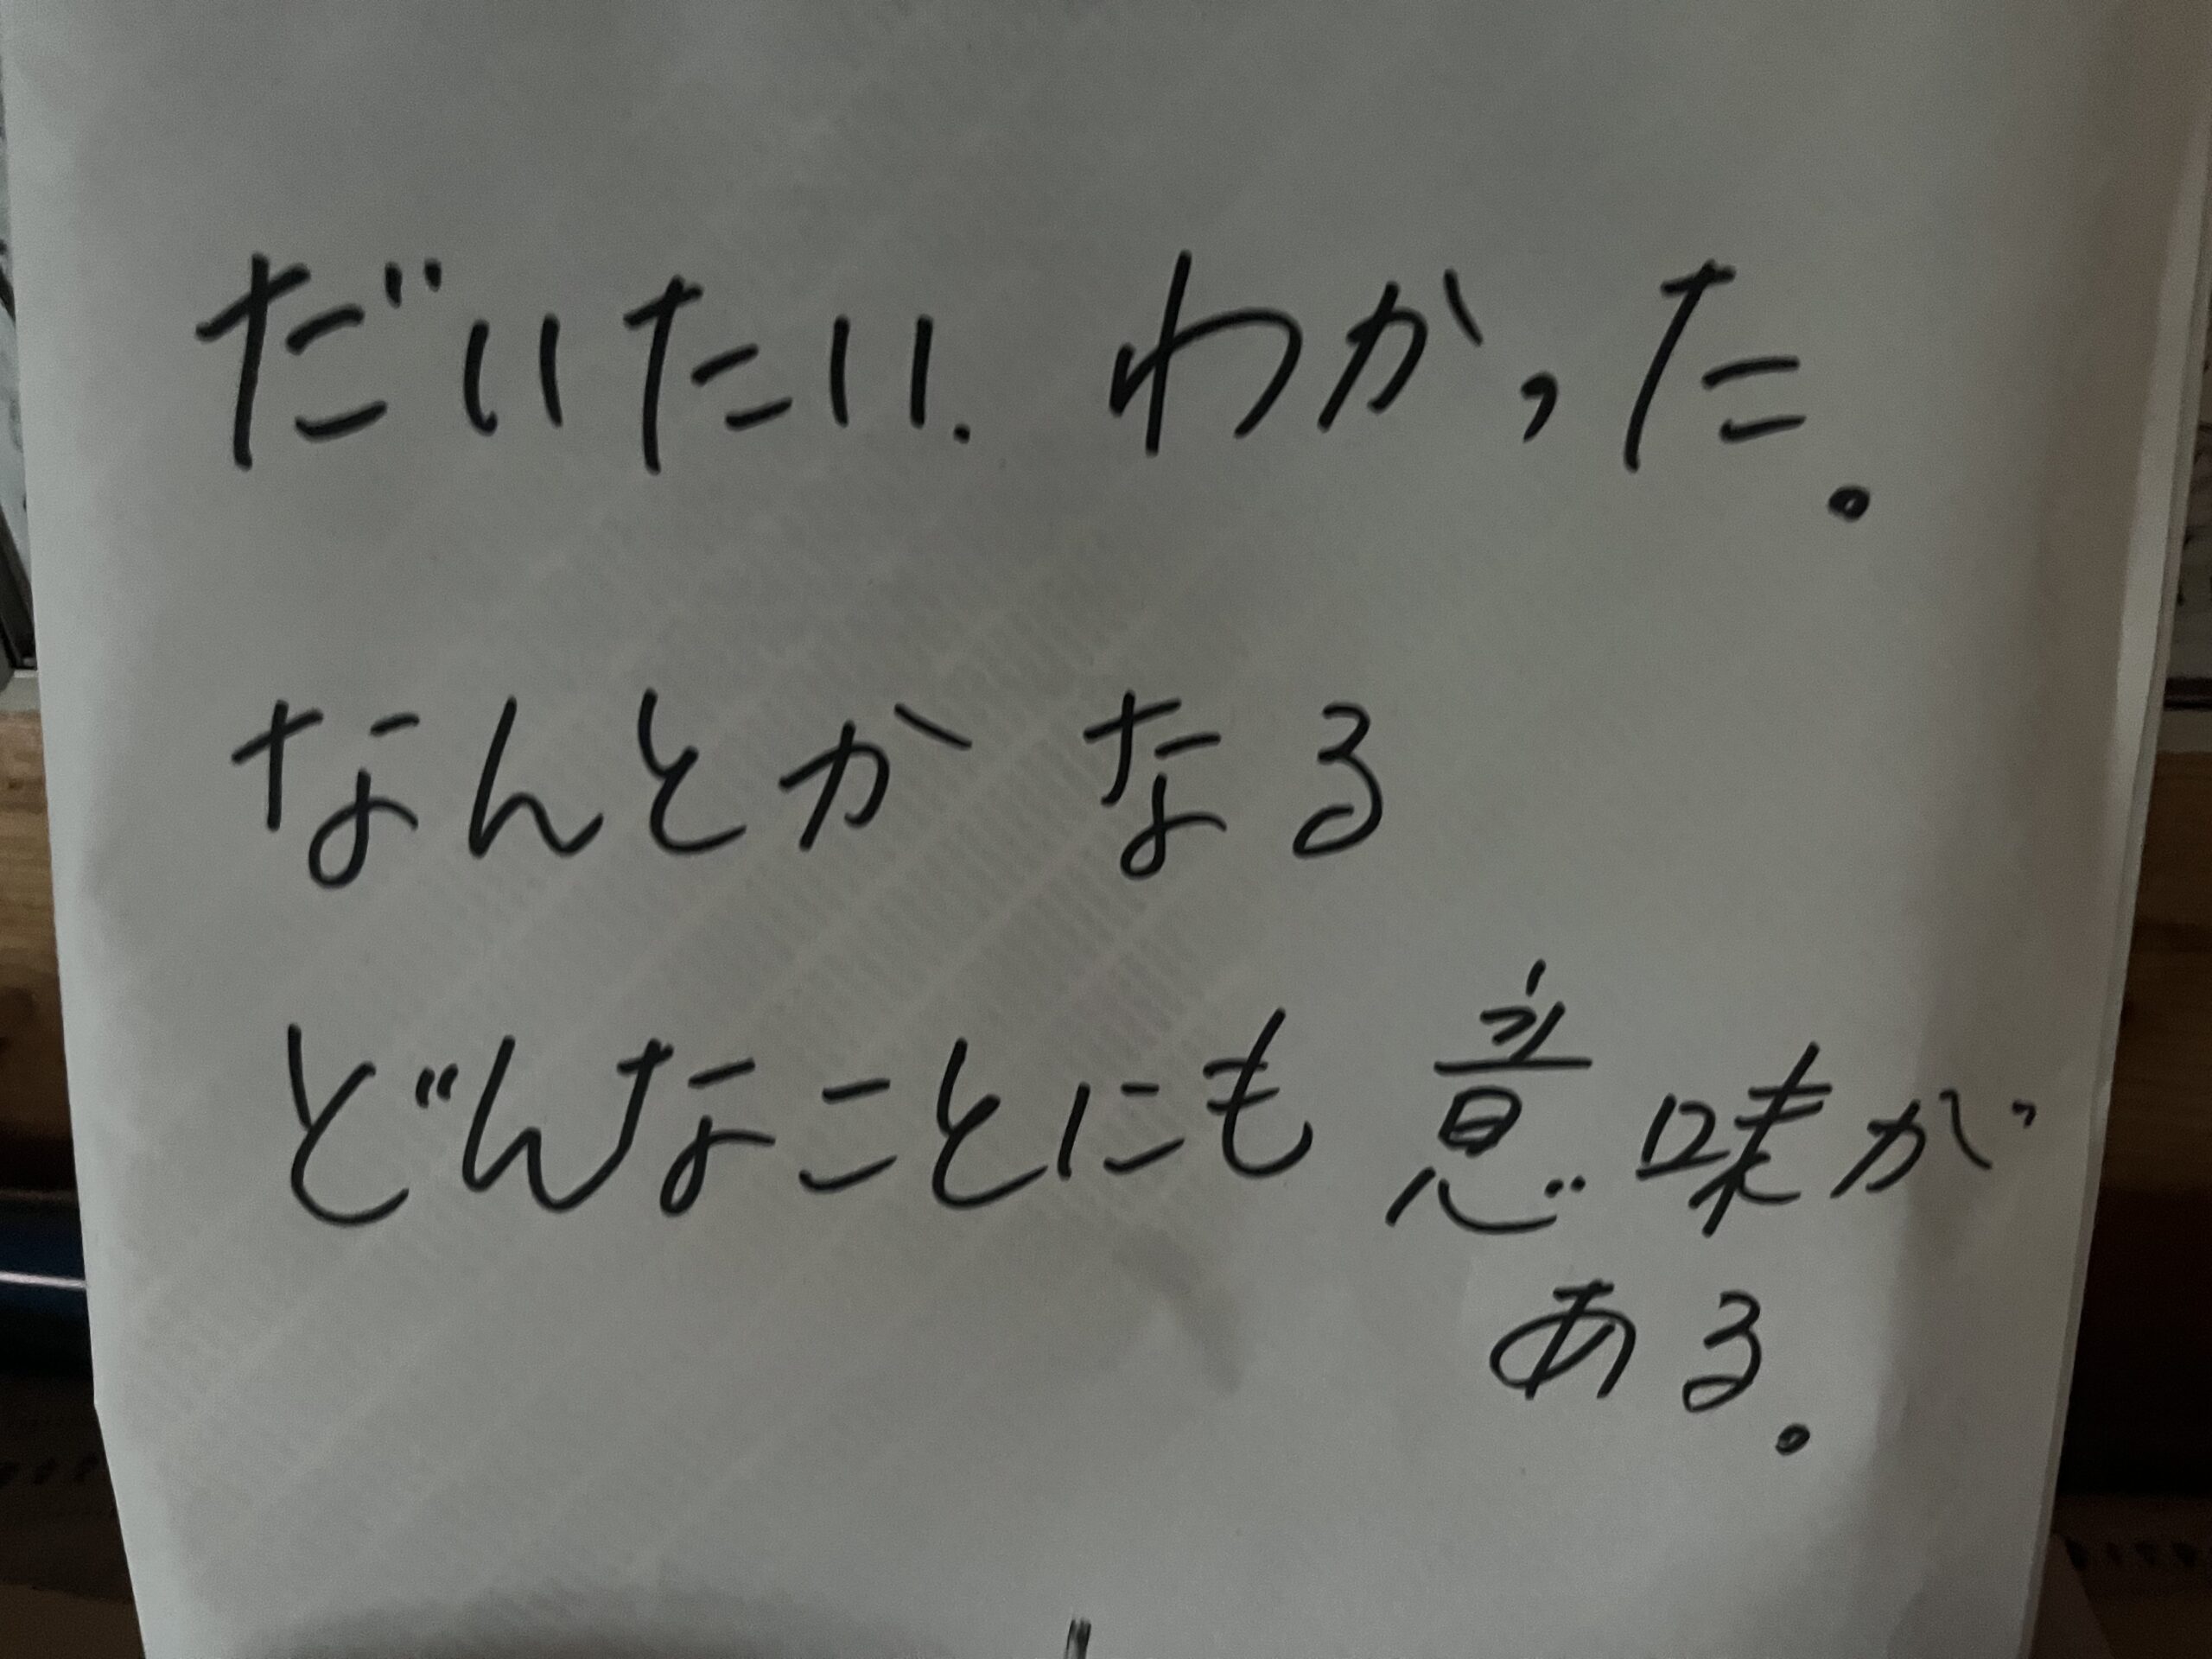 だいたい. わかった。
なんとか なる
どんなことにも 意味が
ある。